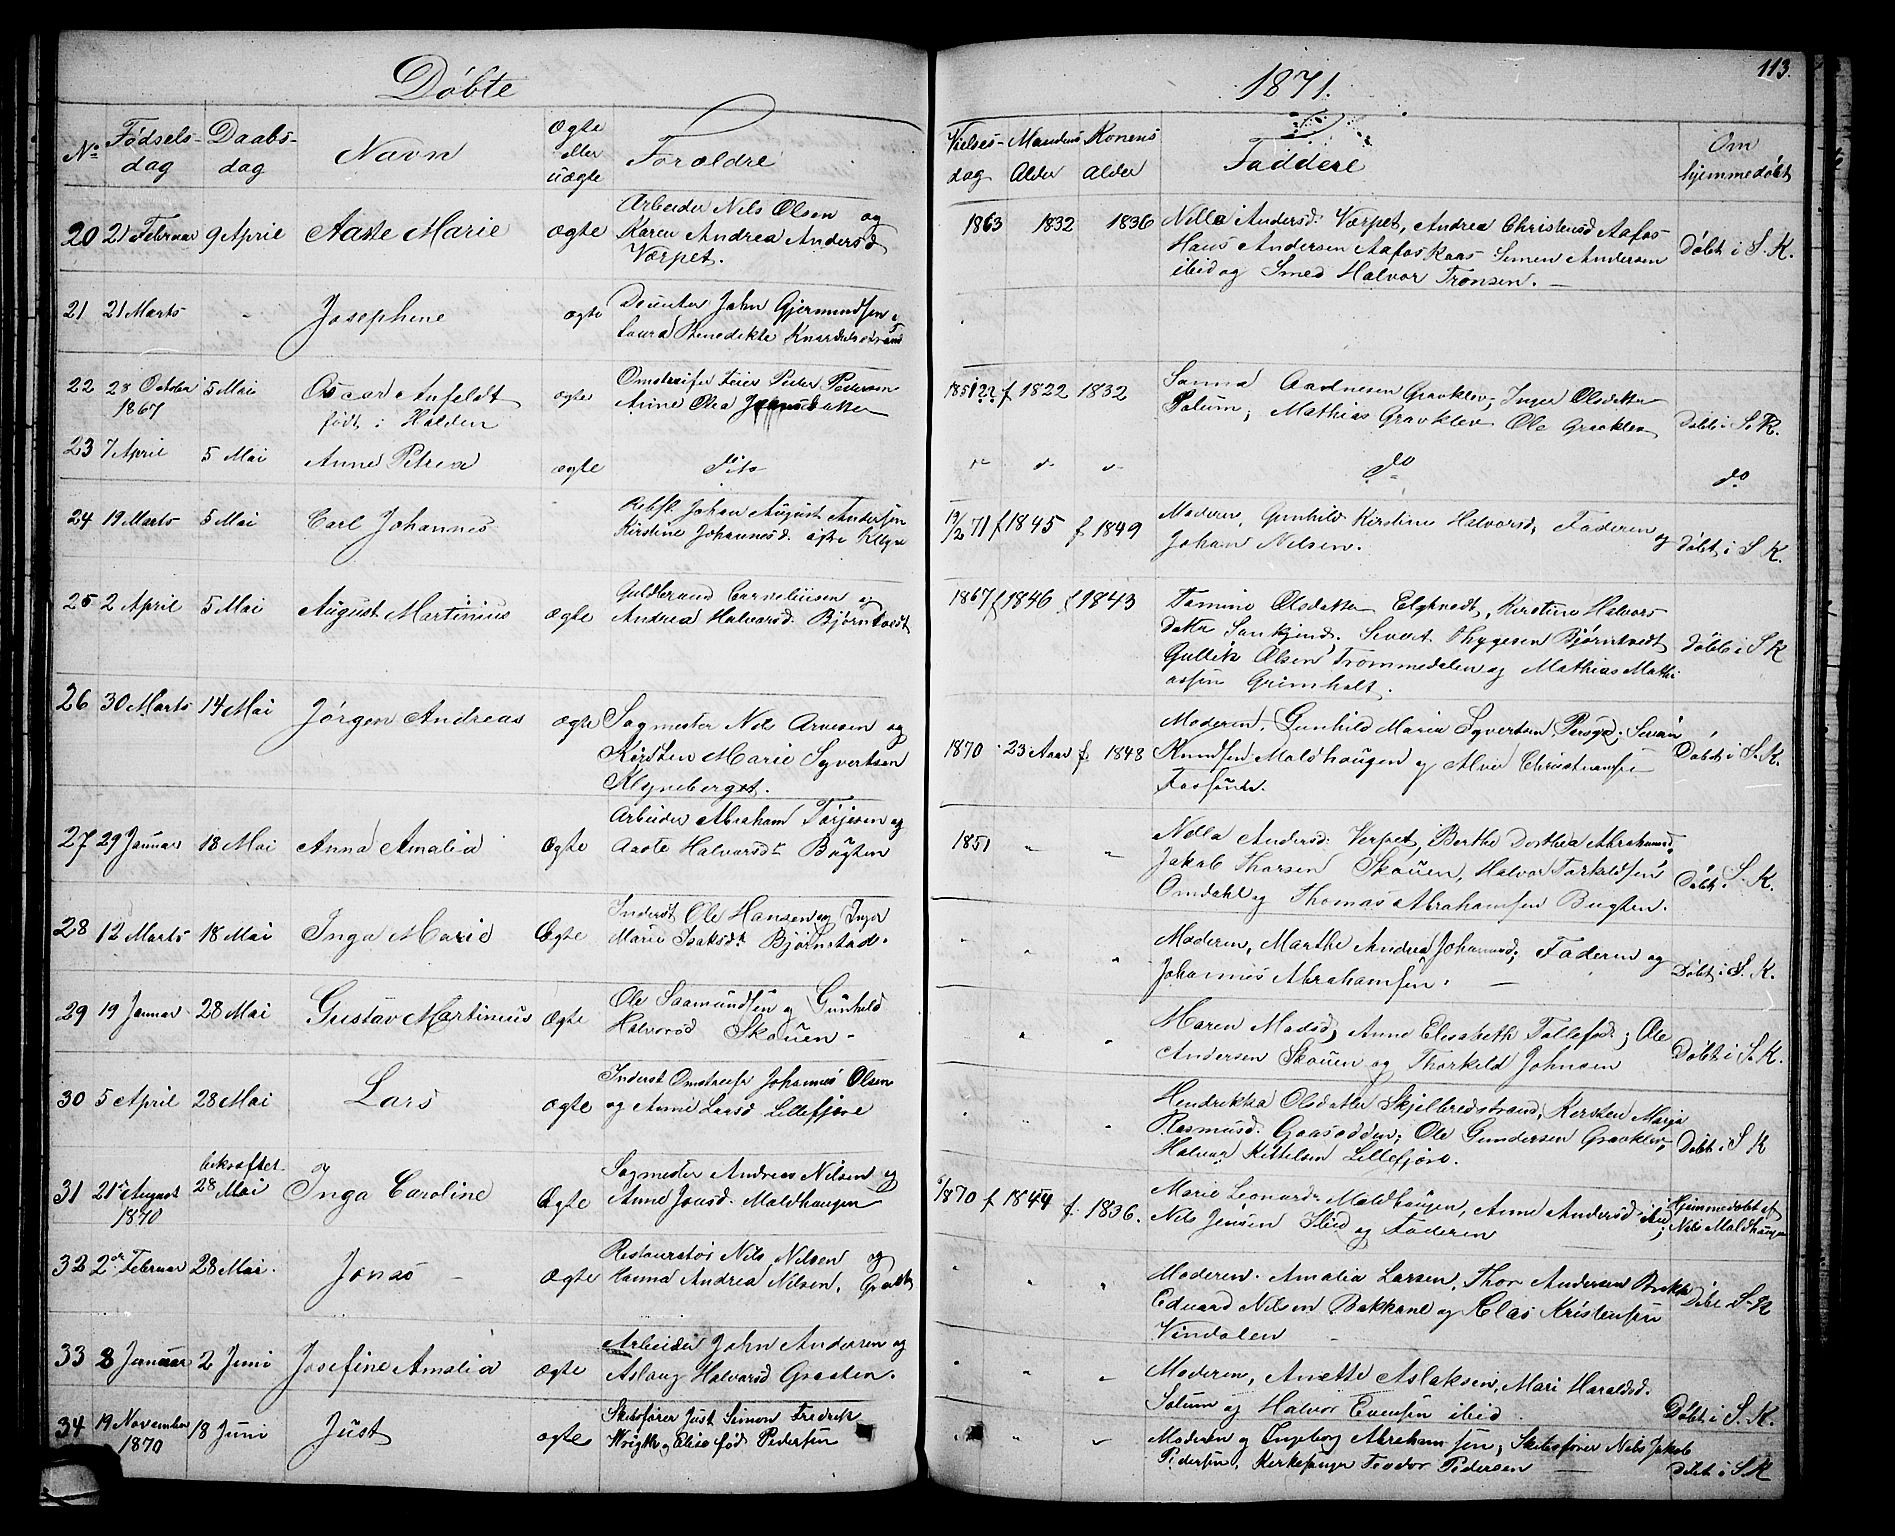 Døbte
1871.
113.
No Fødselsdag Daabsdag Navn Ægte eller uægte Forældre Vielsesdag Mandens Alder Konens Alder Faddere Om hjemmedøbt
20 21 Februar 9 April Aaste Marie Ægte Arbeider Nils Olsen og
Karen Andrea Andersd
Værpet.
1863 1832 1836 Nella Andersd: Værpet, Andrea Christensd Aafos
Hans Andersen Aafos Simen Andersen
ibid og Smed Halvor Tronsen. Døbt i S. K.
21 21 Marts Josephine ægte John Gjermundsen
Laura Benedikte
22 28 October 1867 5 Mai Oscar Anfeldt ægte Peter Pedersen
født i Halden Anne Olea
1822 1832 Sanna Aadnesen Gravklev, Inger Olsdatter
Solum, Mathias Gravklev Ole Gravklev Døbt i S. K.
23 7 April 5 Mai Anne Petrea ægte dito
do do
24 19 Marts 5 Mai Carl Johannes Johan August Andersen
Kirstine Johannesd.
19/2 71 f 1845 f 1849 Moderen, Gunhild Kirstine Halvorsd, Faderen og
Johan Nilsen. Døbt i S. K.
25 2 April 5 Mai August Martinius Ægte Guldbrand Corneliusen og
Andrea Halvorsd. Bjørntvedt
1867 f 1846 f 1843 Olsdatter Kirstine Halvors
datter Sivert Thygesen Bjørntvedt
Gullik Olsen Trommedalen og Mathias Mathi
assen Grimholt. Døbt i S K
26 30 Marts 14 Mai Jørgen Andreas ægte Sagmester Nils Arnesen og
Kirsten Marie Syvertsen
Klyveberget.
1870 23 Aar f. 1848 Moderen, Gunhild Maria Syvertsen
Knudsen Maldhaugen og Christiansen
Døbt i S. K.
27 29 Januar 18 Mai Anna Amalia Ægte Arbeider Abraham Torjesen og
Aaste Halvorsdt Bugten
1851 Nella Andersd. Verpet, Berthe Dorthea Abrahamsd.
Jakob Thorsen Skouen, Halvor Torkildsen
Omdahl og Thomas Abrahamsen Bugten. Døbt i S. K.
28 12 Marts 18 Mai Inga Marie Ægte Inderst Ole Hansen og Inger
Marie Isaksdt. Bjørnstad.
Moderen, Marthe Andrea Johannesd; Faderen og
Johannes Abrahamsen. Døbt i S. K.
29 19 Januar 28 Mai Gustav Martinius Ægte Ole Saamundsen og Gunhild
Halvorsd Skouen
Maren Madsd, Anne Elisabeth Tollefsd.; Ole
Andersen Skouen og Thorkild Johnsen Døbt i S. K.
30 5 April 28 Mai Lars Ægte Inderst Johannes Olsen
og Anne Larsd Lillefjære
Hendrikka Olsdatter Skjelbredstrand, Kirsten Maria
Rasmusd. Gaasodden; Ole Gundersen Gravklev,
Halvor Kittilsen Lillefjære. Døbt i S. K
31 21de August 1870 bekræftet 28 Mai Inga Caroline Ægte Sagmester Andreas Nilsen og
Anne Jonsd. Maldhaugen
f 1844 f. 1836. Marie Leonardsdt Maldhaugen, Anne Andersd ibid;
Nils Jensen Ibid og Faderen Hjemmedøbt af
Nils Maldhaugen
32 2den Februar 28 Mai. Jonas Ægte Restauratør Nils Nilsen og
Hanna Andrea Nilsen,
Moderen. Amalia Larsen, Thor Andersen
Eduard Nilsen Bakkane og Clas Kristensen
Vindalen Døbt S. K
33 8 Januar 2 Juni Josefine Amalia ægte Arbeider John Andersen og
Aslaug Halvorsd Graaten.
Moderen, Anette Aslaksen, Mari Haraldsd.
Solum og Halvor Evensen ibid. Døbt i S. K.
34 19 November 1870 18 Juni Just ægte Skibsfører Just Simon Fredrik
Wrigth og Elise født Pedersen
Moderen og Engeborg Abrahamsen, Skibsfører Nils Jakob
Pedersen, Kirkesanger Teodor Pedersen Døbt i S. K